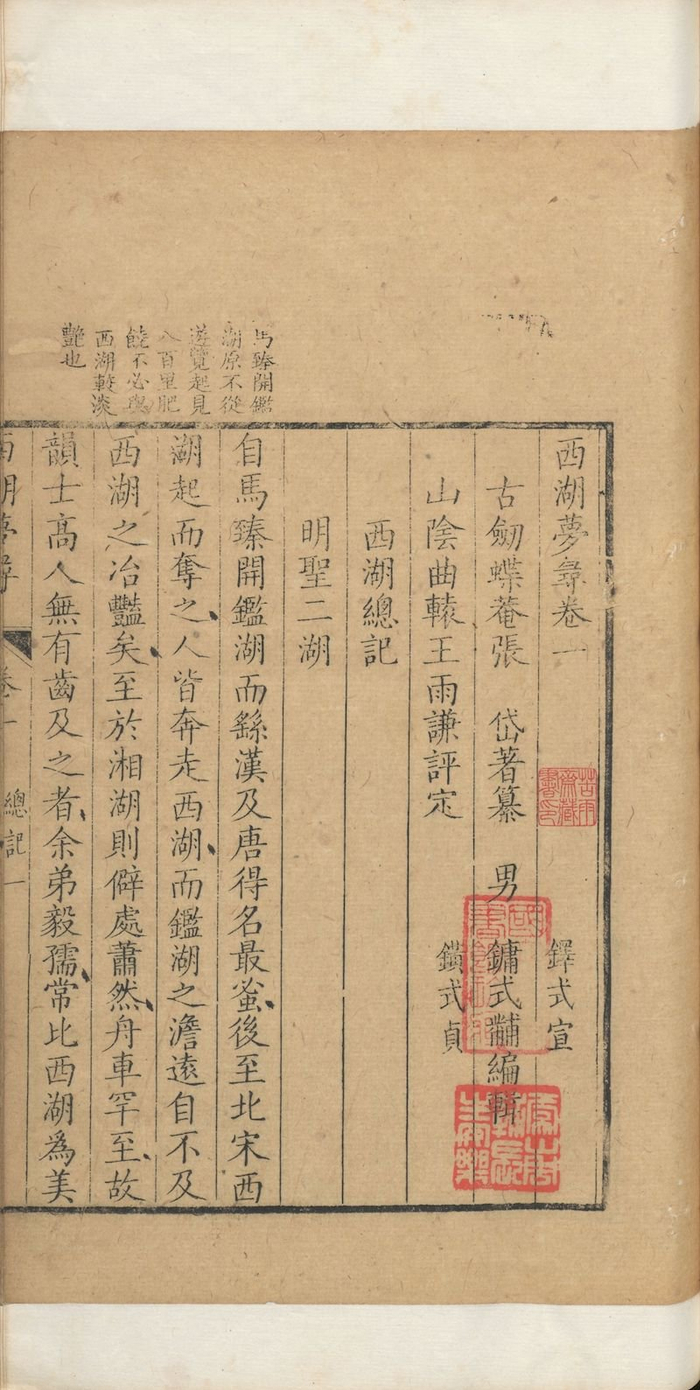 西湖夢尋卷一
古劒蝶菴張　岱著纂　男
鐸式宣
鏞式黼編輯
鐄式貞
山陰曲轅王雨謙評定
西湖總記
明聖二湖
自馬臻開鑑湖而繇漢及唐得名最蚤後至北宋西
湖起而奪之人皆奔走西湖而鑑湖之澹遠自不及
西湖之冶豔矣至於湘湖則僻處蕭然舟車罕至故
韻士髙人無有齒及之者余弟毅孺常比西湖爲美
馬臻開鑑
湖原不從
遊覽起見
八百里肥
饒不必與
西湖較淡
豔也
西湖夢尋
卷一
總記
一
苦雨
齋藏
書印